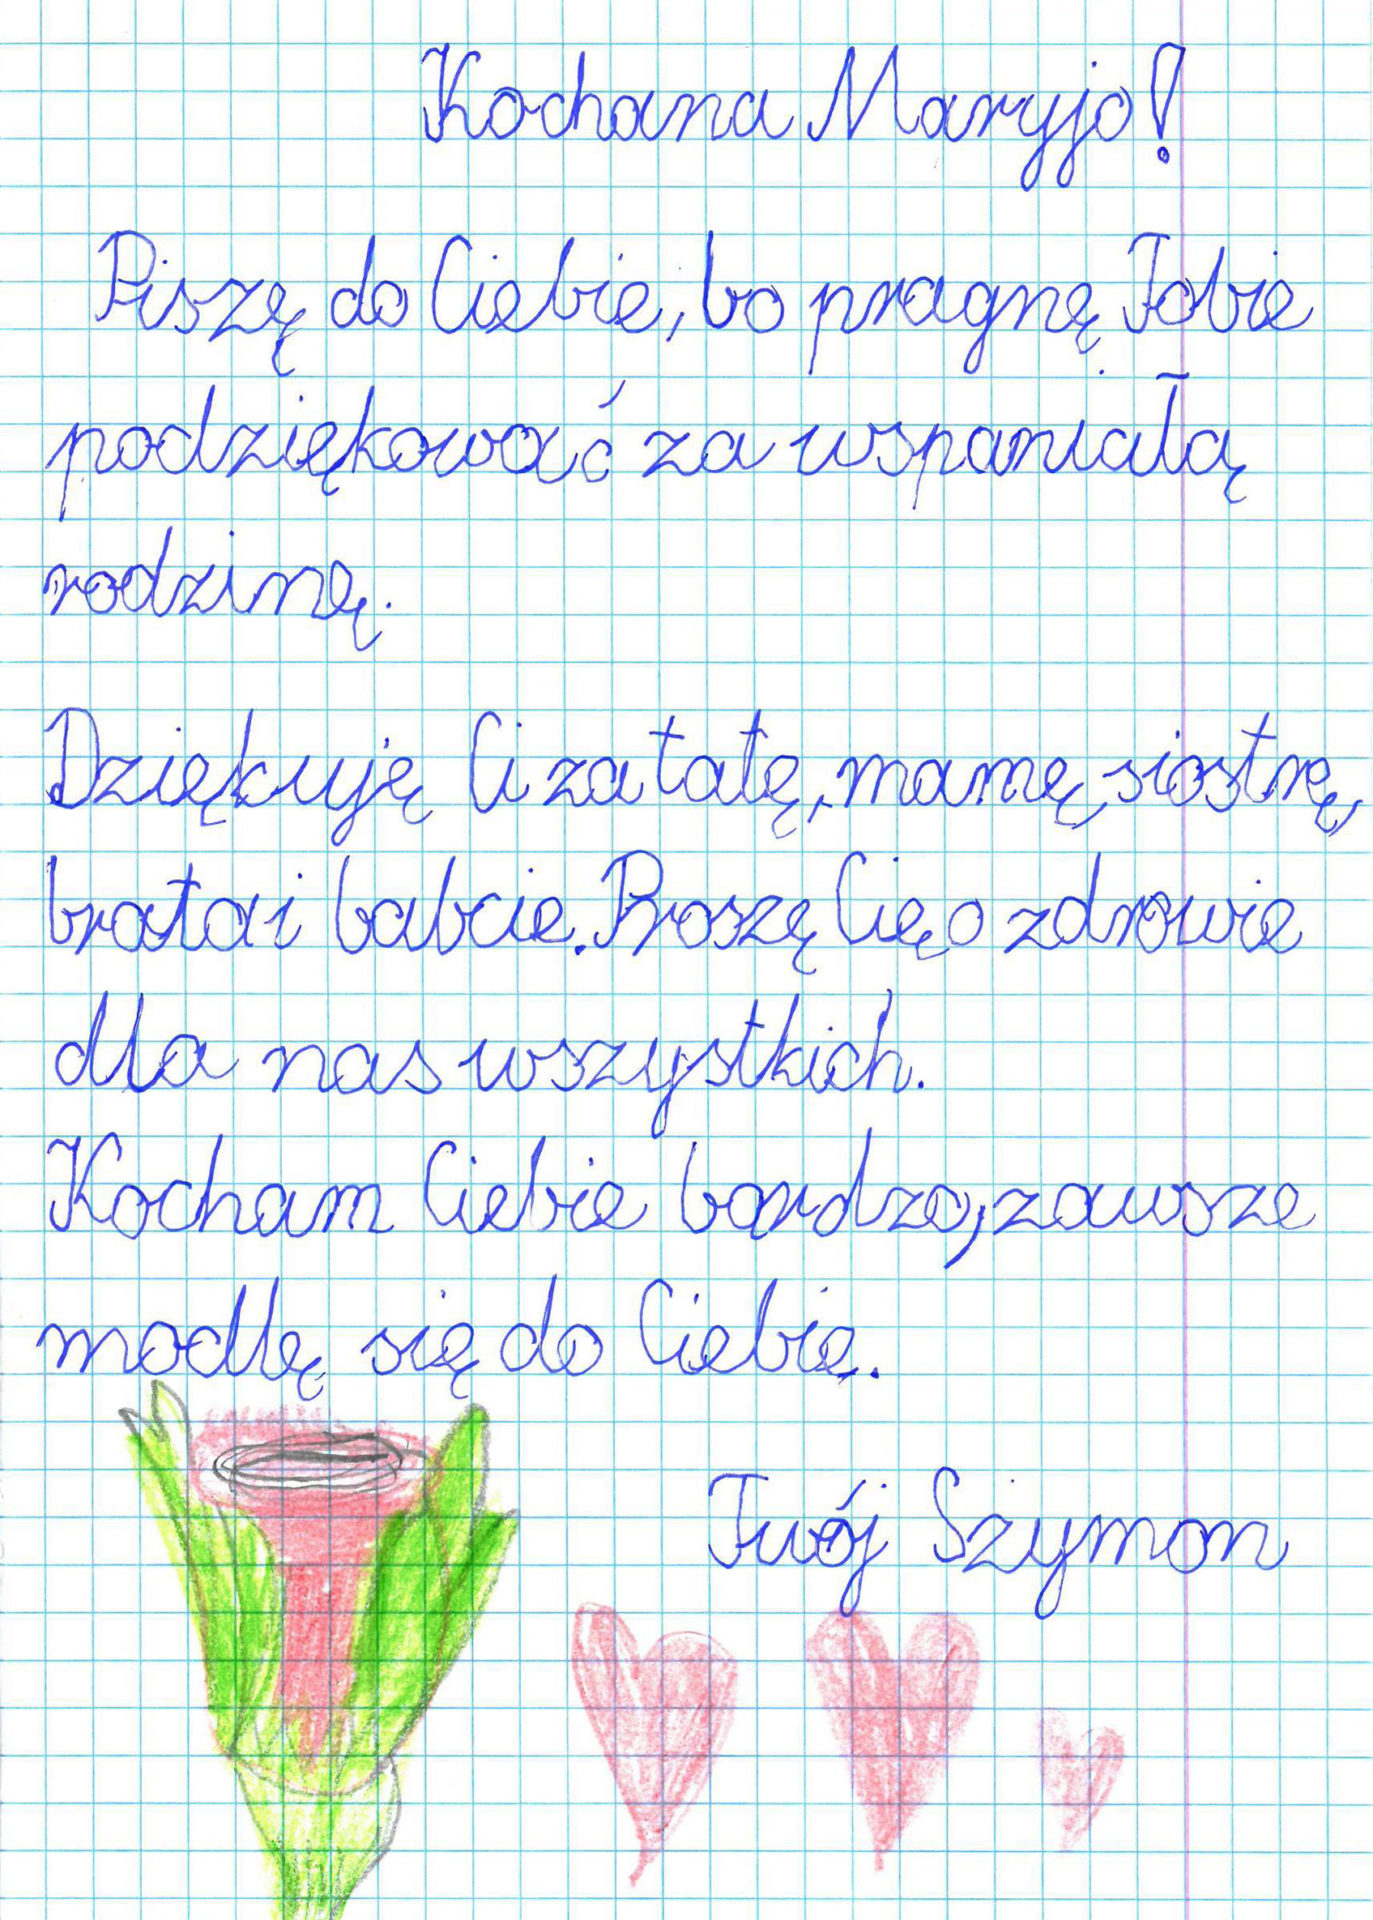 Kochana Maryjo!
Piszę do Ciebie, bo pragnę Tobie
podziękować za wspaniałą
rodzinę.
Dziękuję Ci za tatę, mamę, siostrę,
brata i babcie. Proszę Cię o zdrowie
dla nas wszystkich.
Kocham Ciebie bardzo, zawsze
modlę się do Ciebie.
Twój Szymon